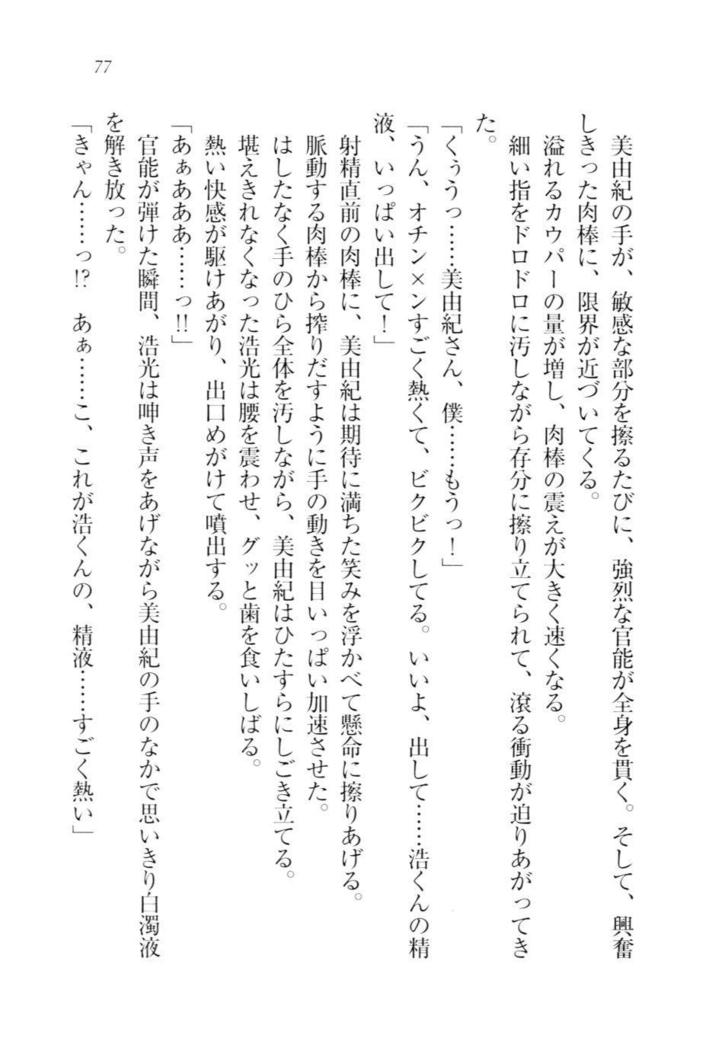 77
美由紀の手が、敏感な部分を擦るたびに、強烈な官能が全身を貫く。そして、興奮
しきった肉棒に、限界が近づいてくる。
溢れるカウパーの量が増し、肉棒の震えが大きく速くなる。
細い指をドロドロに汚しながら存分に擦り立てられて、滾る衝動が迫りあがってき
た。
「くぅうっ……美由紀さん、僕……もうっ！」
「うん、オチン×ンすごく熱くて、ビクビクしてる。いいよ、出して……浩くんの精
液、いっぱい出して！」
射精直前の肉棒に、美由紀は期待に満ちた笑みを浮かべて懸命に擦りあげる。
脈動する肉棒から搾りだすように手の動きを目いっぱい加速させた。
はしたなく手のひら全体を汚しながら、美由紀はひたすらにしごき立てる。
堪えきれなくなった浩光は腰を震わせ、グッと歯を食いしばる。
熱い快感が駆けあがり、出口めがけて噴出する。
「あぁあああ……っ!!」
官能が弾けた瞬間、浩光は呻き声をあげながら美由紀の手のなかで思いきり白濁液
を解き放った。
「きゃん……っ!?　あぁ……こ、これが浩くんの、精液……すごく熱い」